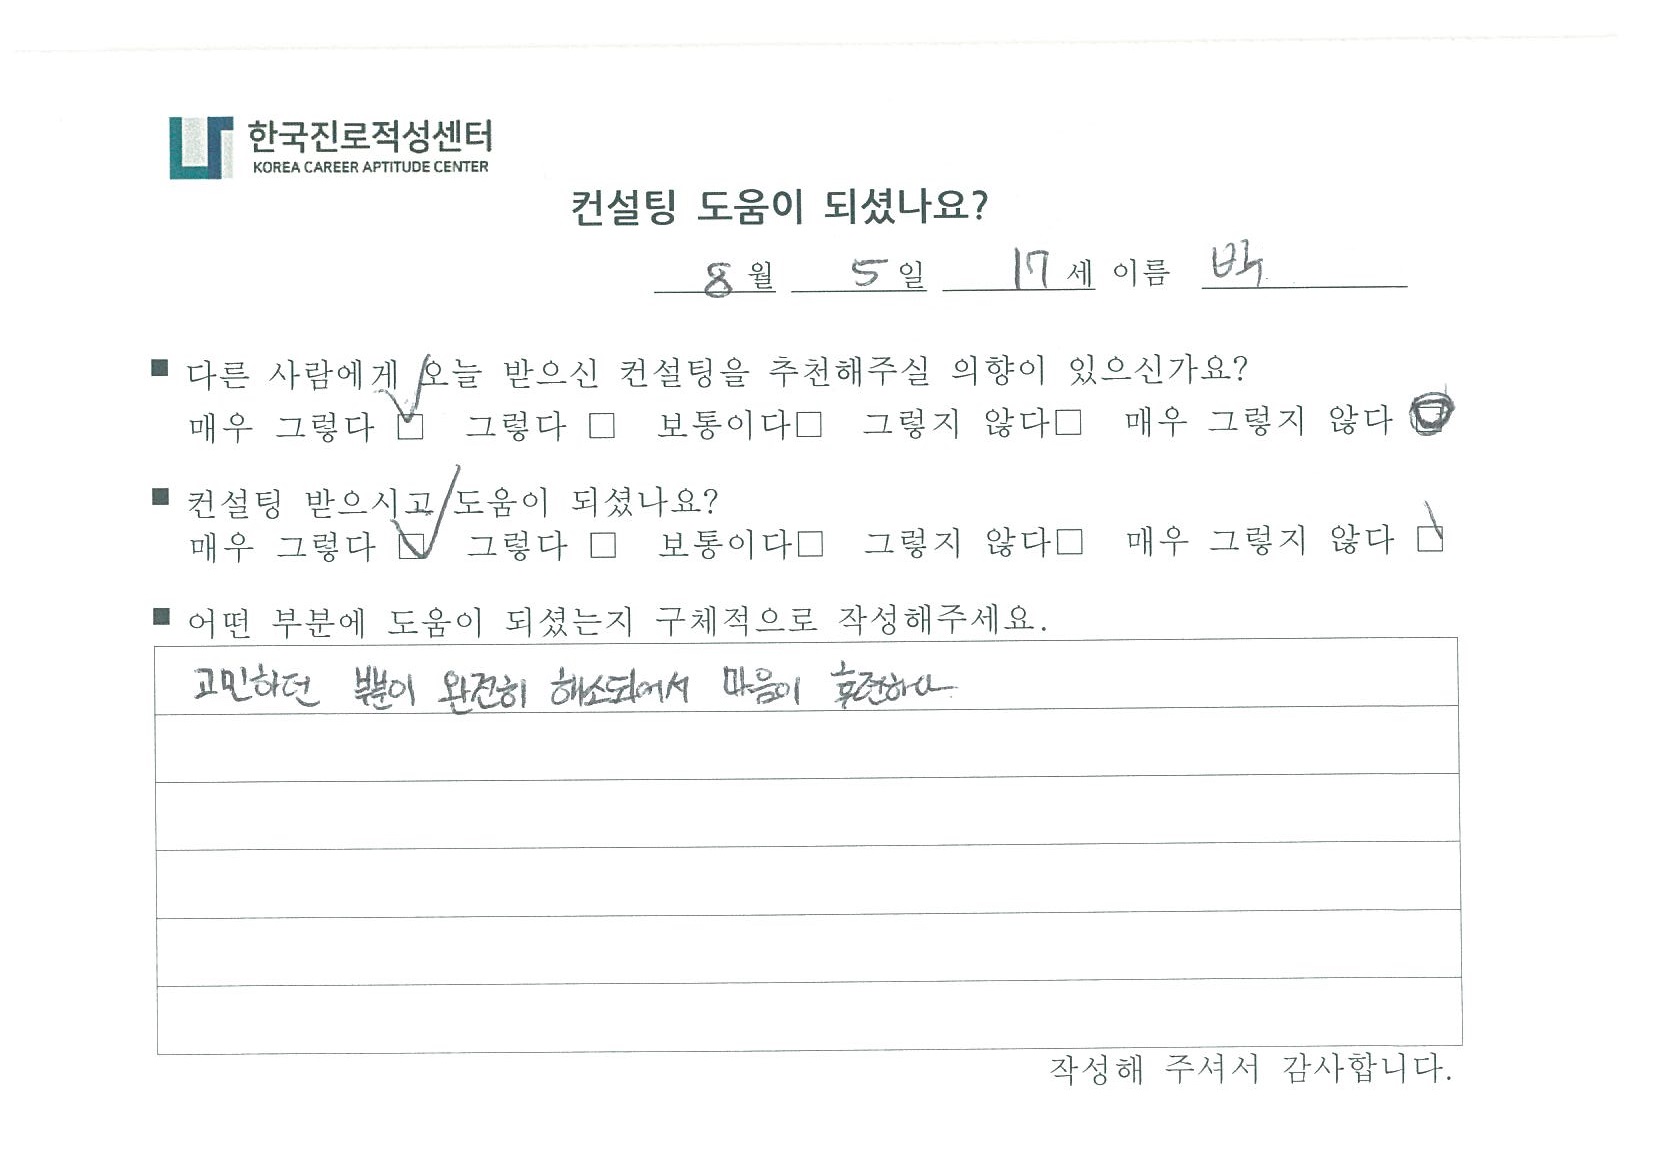 한국진로적성센터
KOREA CAREER APTITUDE CENTER
컨설팅 도움이 되셨나요?
8 월 5 일 17 세 이름 박
■ 다른 사람에게 오늘 받으신 컨설팅을 추천해주실 의향이 있으신가요?
매우 그렇다 □ 그렇다 □ 보통이다□ 그렇지 않다□ 매우 그렇지 않다 □
■ 컨설팅 받으시고 도움이 되셨나요?
매우 그렇다 □ 그렇다 □ 보통이다□ 그렇지 않다□ 매우 그렇지 않다 □
■ 어떤 부분에 도움이 되셨는지 구체적으로 작성해주세요.
고민하던 부분이 완전히 해소되어서 마음이 후련하다
작성해 주셔서 감사합니다.